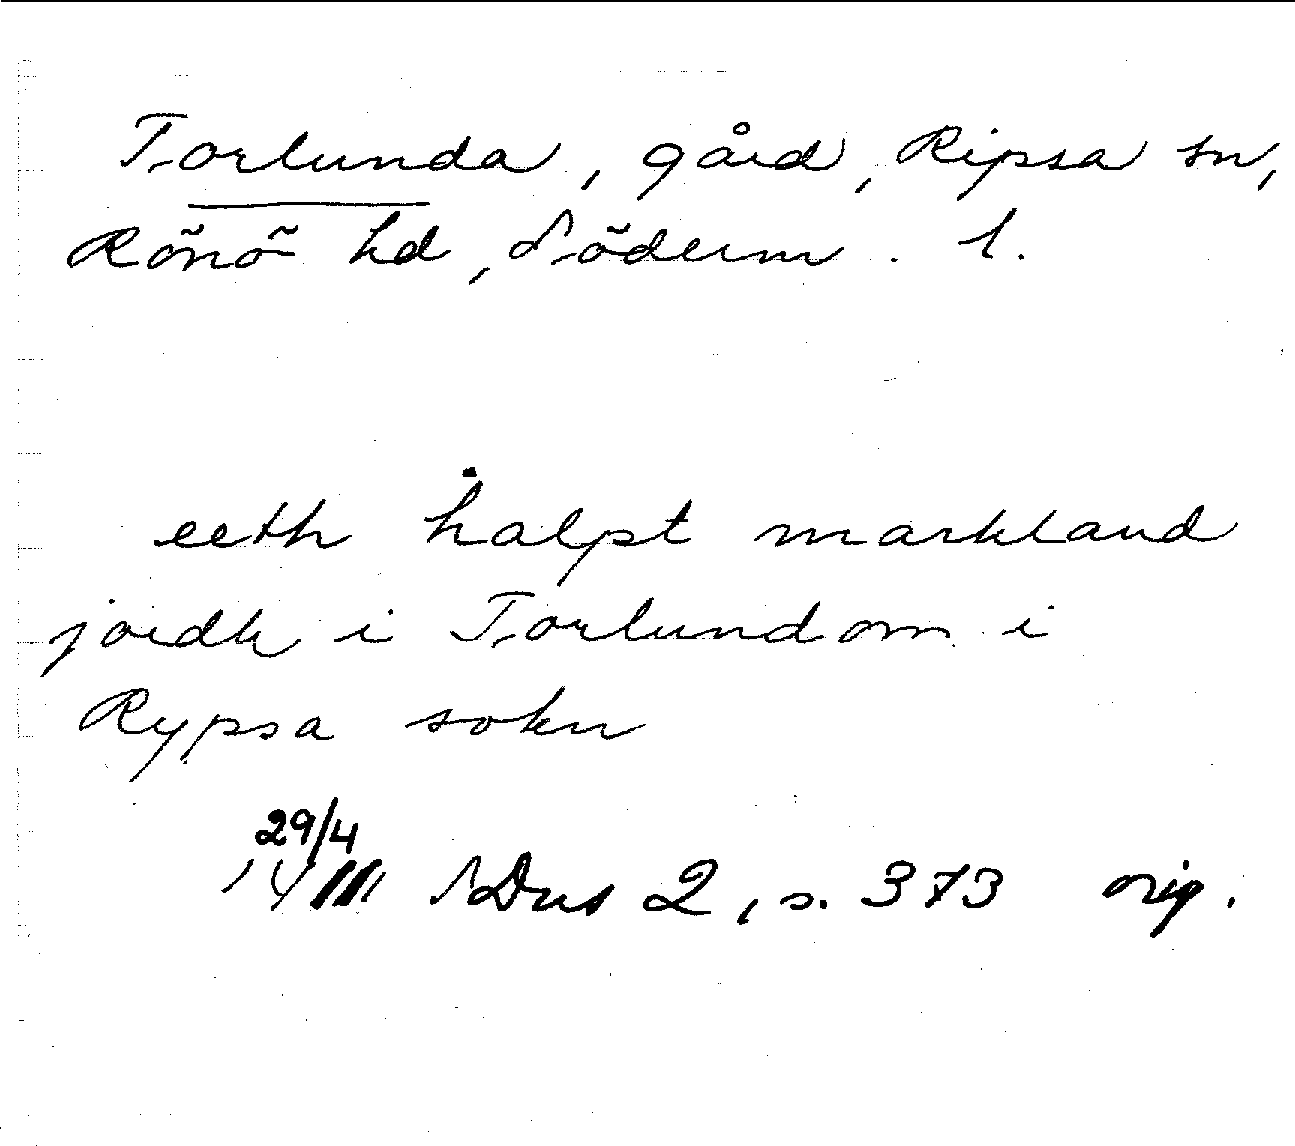 Torlunda, gård, Ripsa sn,
Rönö hd, Söderm. l.
eeth halpt markland
jordh i Torlundom i
Rypsa sokn
29/4
1411 SDns 2, s. 373 orig.